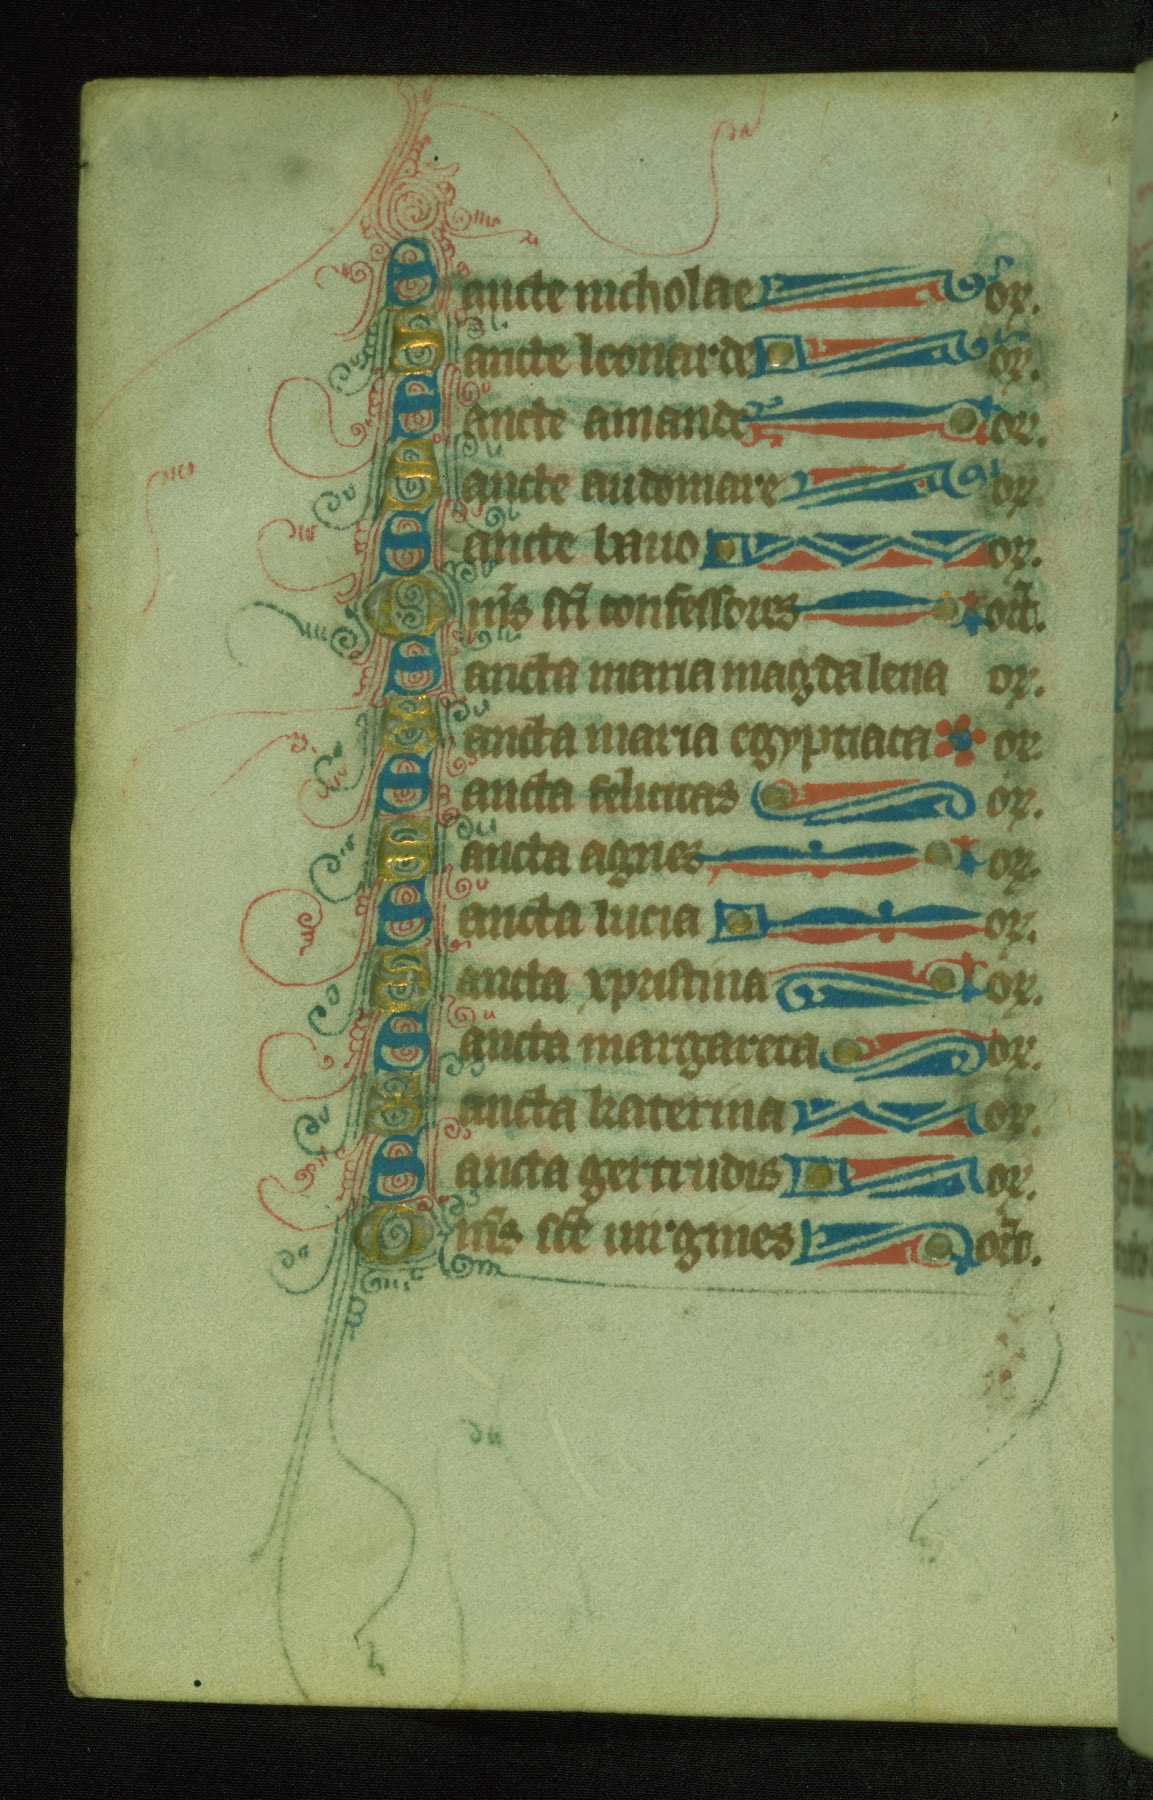 Sancte nicholae or.
Sancte leonarde or.
Sancte amande or.
Sancte audomare or
Sancte bauo or.
Om̄s sc̄i confessores orb̄.
Sancta maria magdalena or.
Sancta maria egyptiaca or
Sancta felicitas or.
Sancta agnes or.
Sancta lucia or.
Sancta xpristina or.
Sancta margareta or.
Sancta katerina or.
Sancta gertrudis or.
Om̄s sc̄e uirgines or̄.